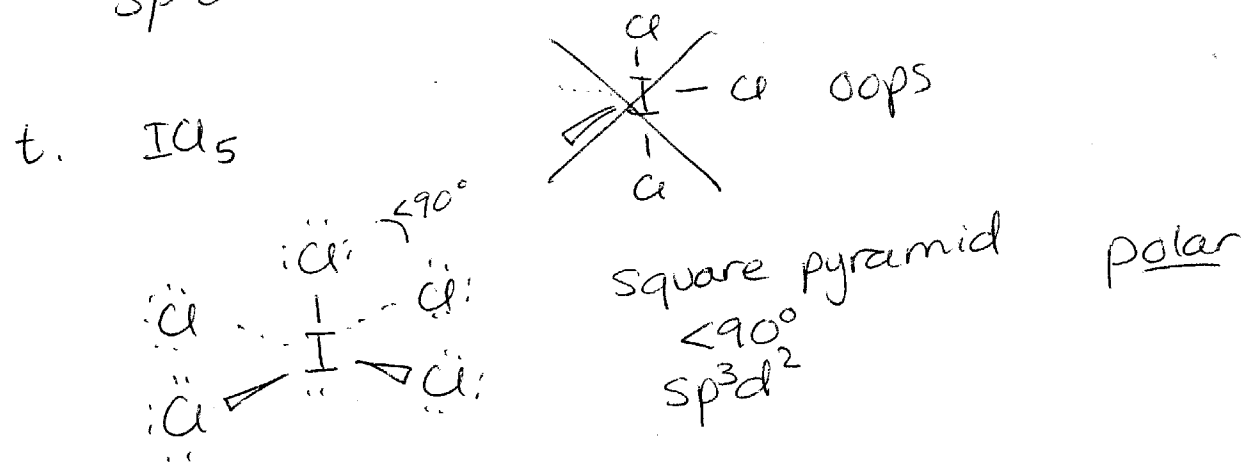 sp
Cl
I – Cl oops
Cl
t. ICl5
<90°
:Cl:
Cl:
:Cl
I
:Cl
Cl:
square pyramid polar
<90°
sp³d²